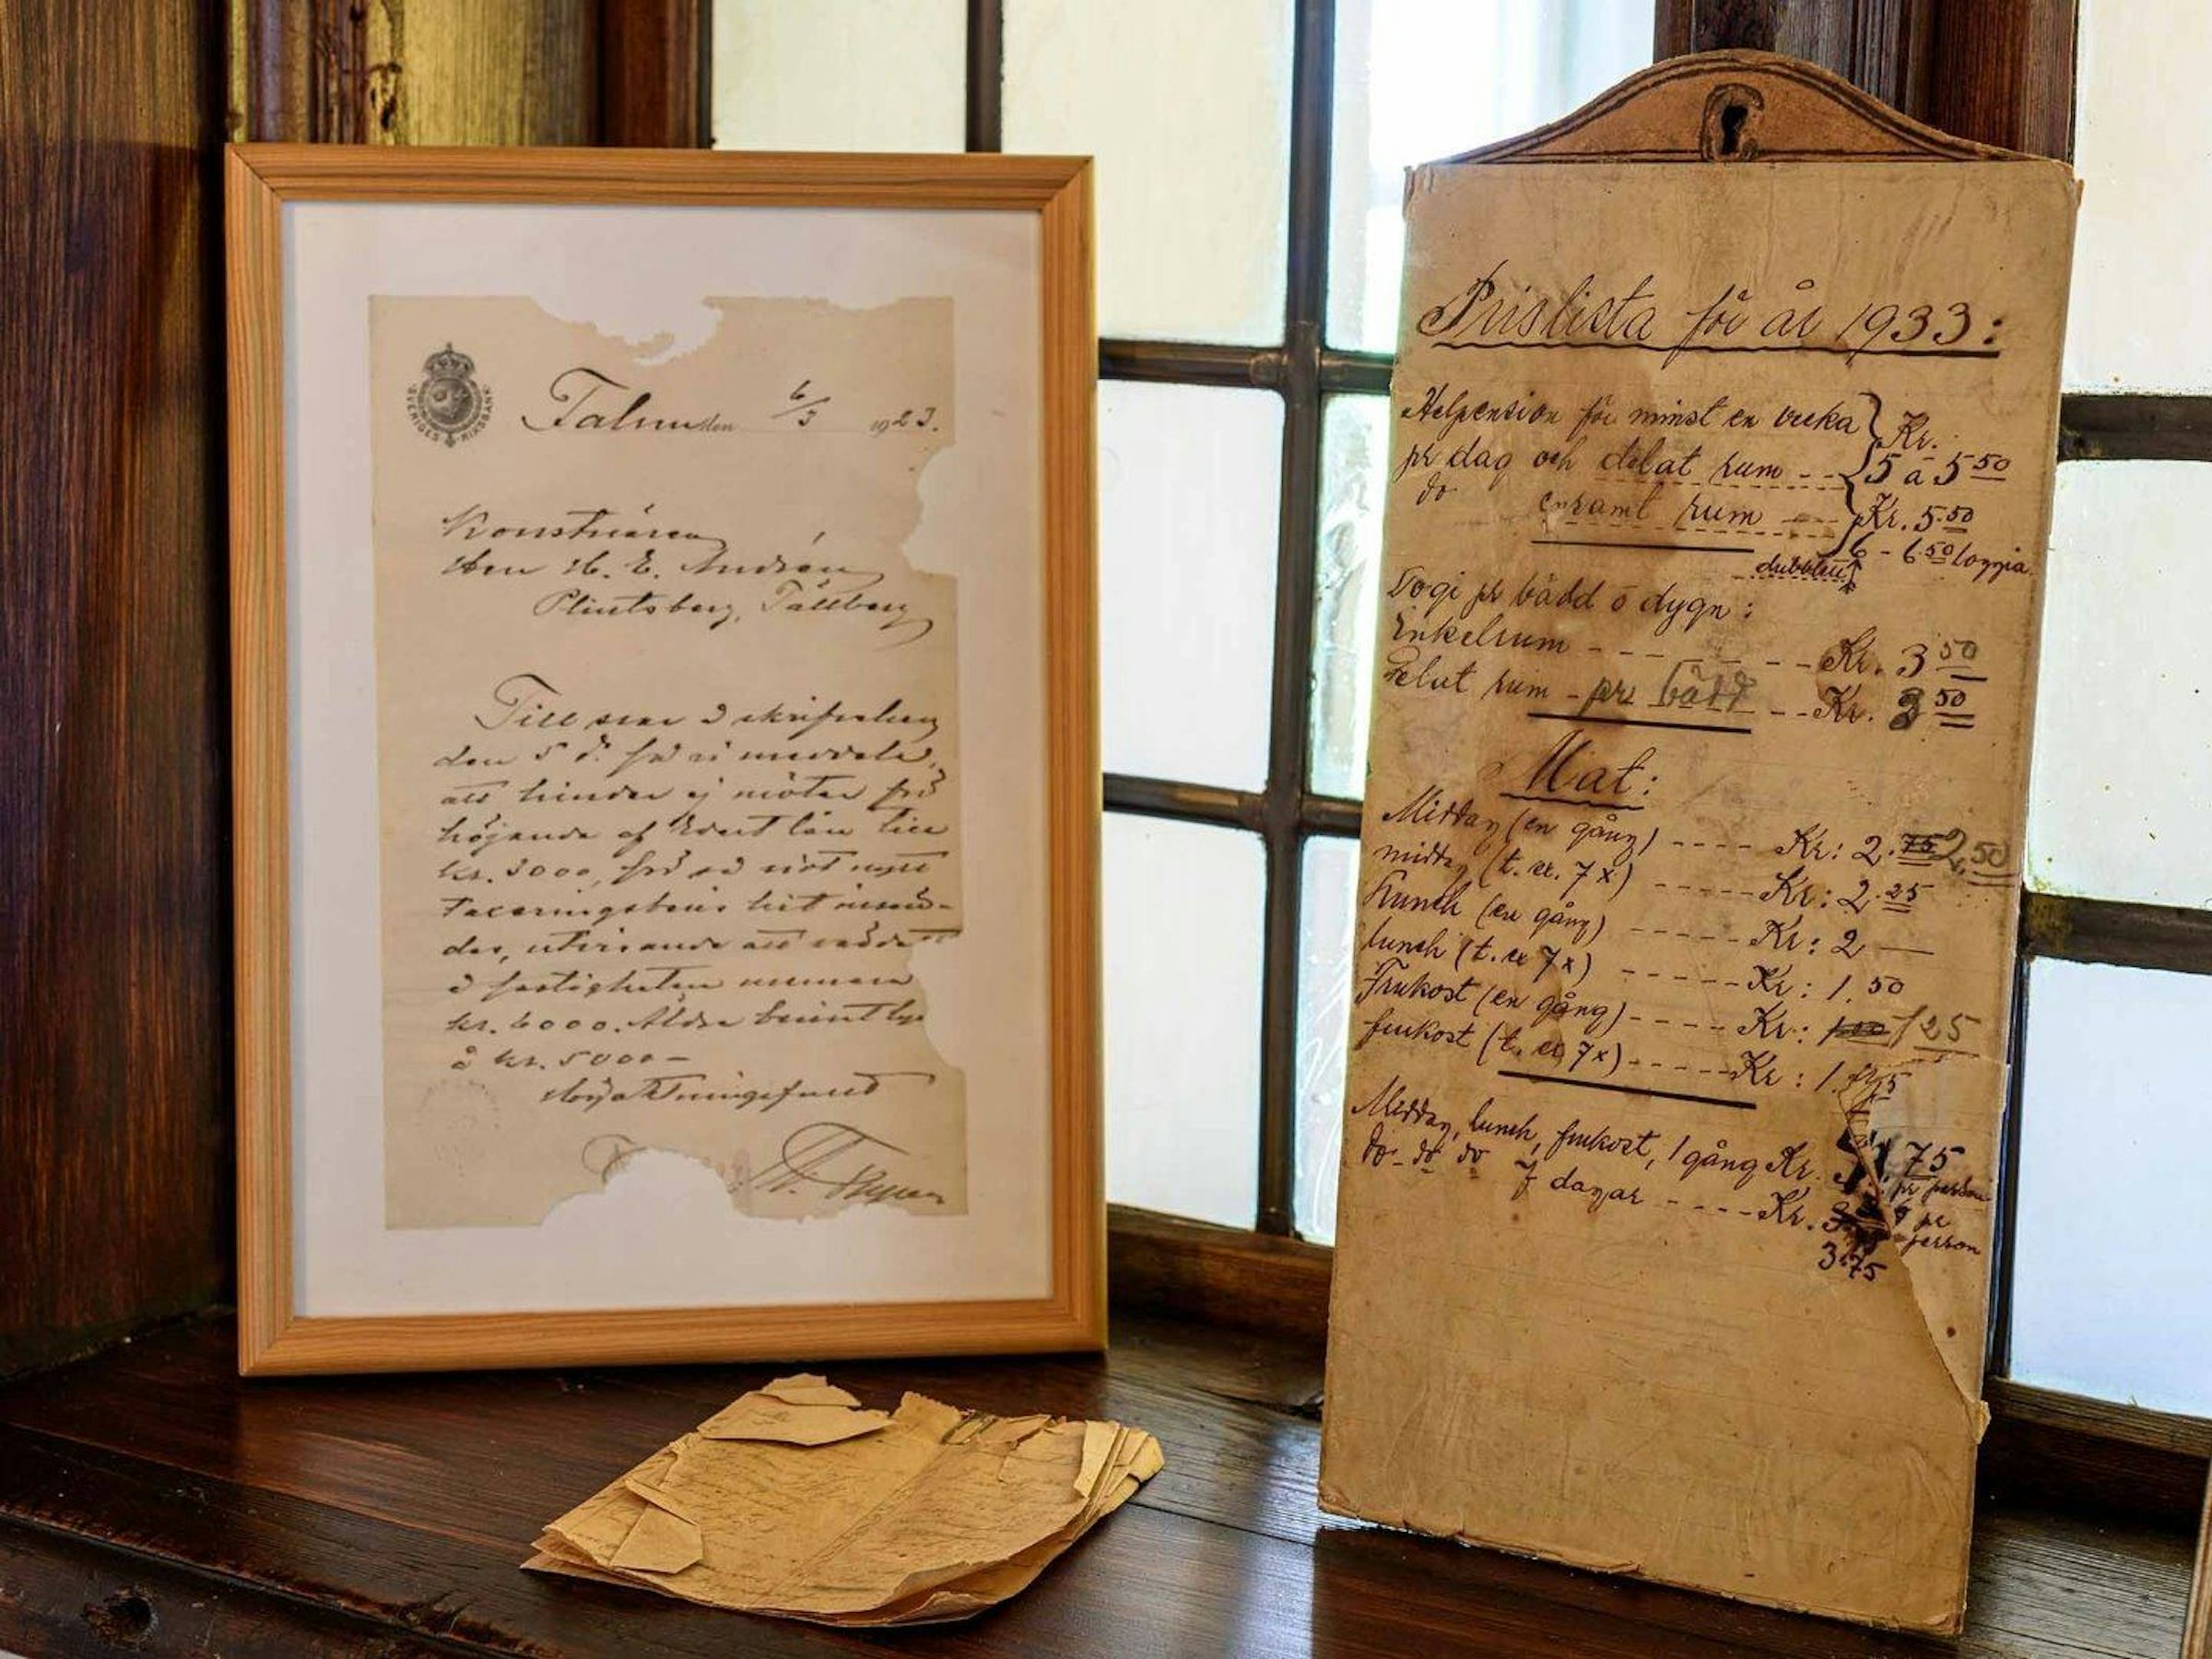 SVERIGES RIKSBANK
Falun den 6/3 1923.
Konstnären
Herr H. E. Andrén
Plintsberg, Tällberg
Till svar å skrifvelsen
den 5 d:s få vi meddela,
att hinder ej möter för
höjande af Edert lån till
kr. 3000, för så vidt nytt
Taxeringsbevis hit insän-
des, utvisande att värdet
å fastigheten numera
kr. 6000. Äldre beviset lyd
å kr. 5000 -
Högaktningsfullt
Prislista för år 1933:
Helpension för minst en vecka } Kr.
pr dag och delat rum -- 5 à 5 50
do enramt rum --- Kr. 5.50
dubblett 6 - 6.50 loggia
Logi pr bädd o dygn:
Enkelrum - - - - - - Kr. 3 50
Delat rum - pr bädd - - Kr. 3 50
Mat:
Middag (en gång) ---- Kr: 2.75 2,50
midd. (t. ex. 7x) ----- Kr: 2.25
Lunch (en gång) ----- Kr: 2 —
lunch (t. ex 7x) ----- Kr: 1.50
Frukost (en gång) ---- Kr: 1.00 1 25
frukost (t. ex 7x) ----- Kr: 1.
Middag, lunch, frukost, 1 gång Kr. 75 pr person
do - do do 7 dagar ---- Kr. pr person
3.75